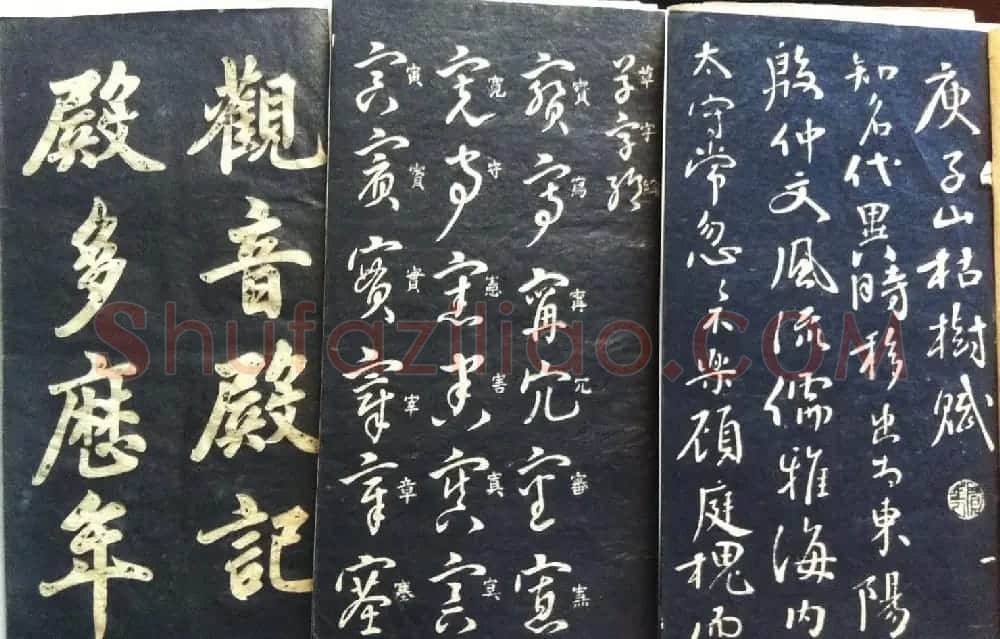 庾子山枯樹賦
知名代異時移出為東陽
殷仲文風流儒雅海内
太守常忽々不樂顧庭槐而
草字
寶寫甯冗審
寬守憲害
寅賓實宰章塞
觀音殿記
殿多歷年
Shufaziliao.COM